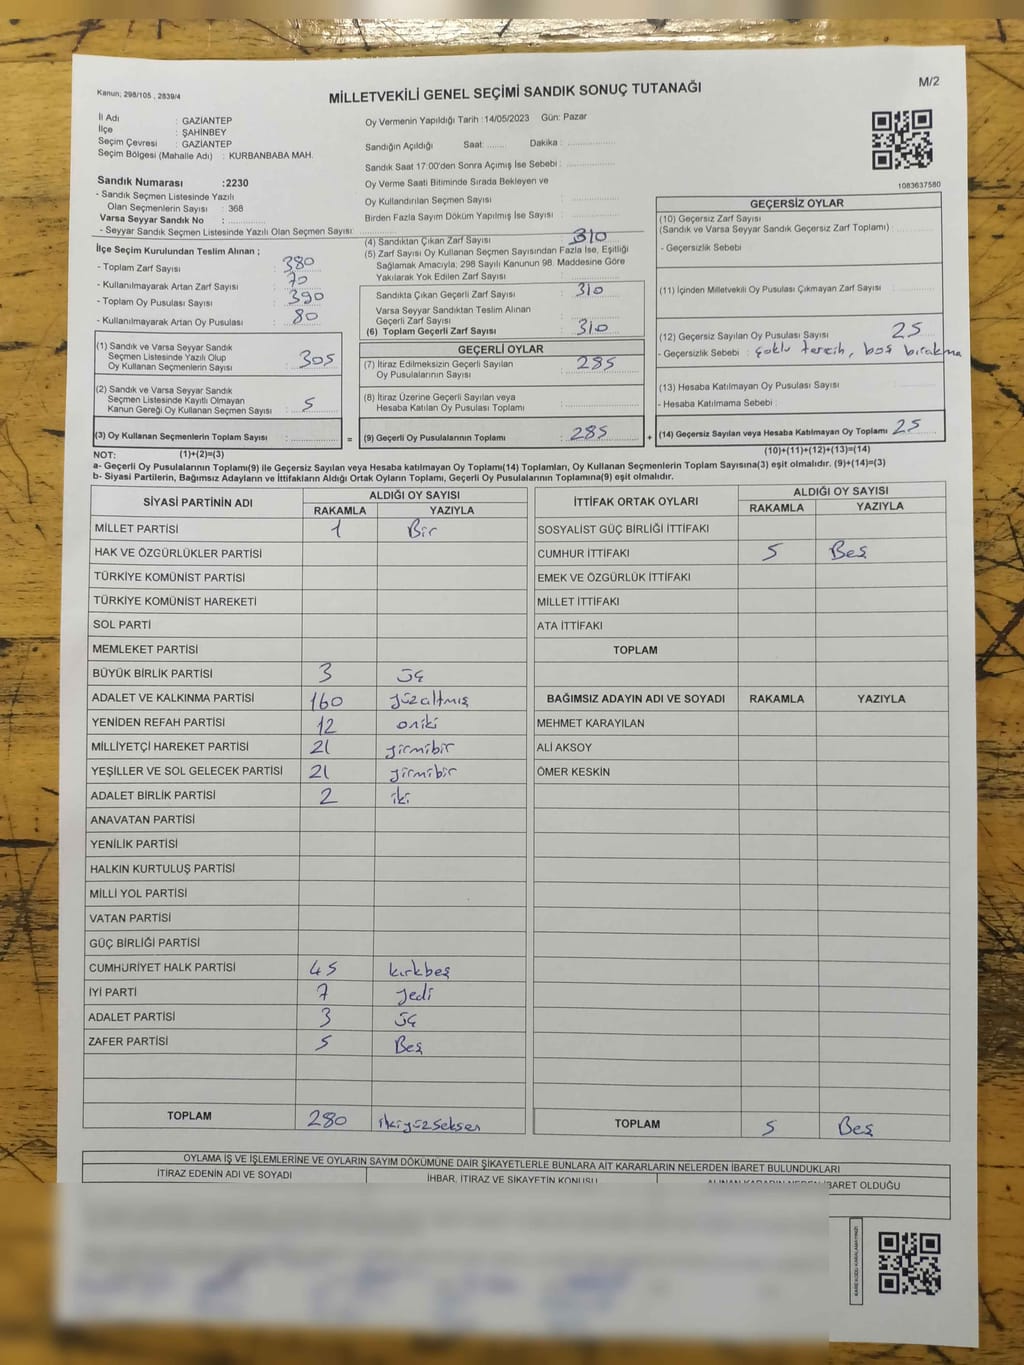 Kanun; 298/105 , 2839/4
MİLLETVEKİLİ GENEL SEÇİMİ SANDIK SONUÇ TUTANAĞI
M/2
İl Adı : GAZİANTEP
İlçe : ŞAHİNBEY
Seçim Çevresi : GAZİANTEP
Seçim Bölgesi (Mahalle Adı) : KURBANBABA MAH.
Sandık Numarası :2230
- Sandık Seçmen Listesinde Yazılı
Olan Seçmenlerin Sayısı : 368
Varsa Seyyar Sandık No :
- Seyyar Sandık Seçmen Listesinde Yazılı Olan Seçmen Sayısı:
Oy Vermenin Yapıldığı Tarih :14/05/2023 Gün: Pazar
Sandığın Açıldığı Saat: Dakika :
Sandık Saat 17:00'den Sonra Açımış İse Sebebi :
Oy Verme Saati Bitiminde Sırada Bekleyen ve
Oy Kullandırılan Seçmen Sayısı :
Birden Fazla Sayım Döküm Yapılmış İse Sayısı :
1083637580
İlçe Seçim Kurulundan Teslim Alınan ;
- Toplam Zarf Sayısı : 380
- Kullanılmayarak Artan Zarf Sayısı : 70
- Toplam Oy Pusulası Sayısı : 390
- Kullanılmayarak Artan Oy Pusulası : 80
(1) Sandık ve Varsa Seyyar Sandık
Seçmen Listesinde Yazılı Olup
Oy Kullanan Seçmenlerin Sayısı : 305
(2) Sandık ve Varsa Seyyar Sandık
Seçmen Listesinde Kayıtlı Olmayan
Kanun Gereği Oy Kullanan Seçmen Sayısı : 5
(3) Oy Kullanan Seçmenlerin Toplam Sayısı :
(4) Sandıktan Çıkan Zarf Sayısı : 310
(5) Zarf Sayısı Oy Kullanan Seçmen Sayısından Fazla İse, Eşitliği
Sağlamak Amacıyla; 298 Sayılı Kanunun 98. Maddesine Göre
Yakılarak Yok Edilen Zarf Sayısı :
Sandıkta Çıkan Geçerli Zarf Sayısı : 310
Varsa Seyyar Sandıktan Teslim Alınan
Geçerli Zarf Sayısı :
(6) Toplam Geçerli Zarf Sayısı : 310
GEÇERLİ OYLAR
(7) İtiraz Edilmeksizin Geçerli Sayılan
Oy Pusulalarının Sayısı : 285
(8) İtiraz Üzerine Geçerli Sayılan veya
Hesaba Katılan Oy Pusulası Toplamı :
= (9) Geçerli Oy Pusulalarının Toplamı : 285 +
GEÇERSİZ OYLAR
(10) Geçersiz Zarf Sayısı
(Sandık ve Varsa Seyyar Sandık Geçersiz Zarf Toplamı) :
- Geçersizlik Sebebi :
(11) İçinden Milletvekili Oy Pusulası Çıkmayan Zarf Sayısı :
(12) Geçersiz Sayılan Oy Pusulası Sayısı : 25
- Geçersizlik Sebebi : Çoklu tercih, boş bırakma
(13) Hesaba Katılmayan Oy Pusulası Sayısı :
- Hesaba Katılmama Sebebi :
(14) Geçersiz Sayılan veya Hesaba Katılmayan Oy Toplamı : 25
NOT: (1)+(2)=(3)
(10)+(11)+(12)+(13)=(14)
a- Geçerli Oy Pusulalarının Toplamı(9) ile Geçersiz Sayılan veya Hesaba katılmayan Oy Toplamı(14) Toplamları, Oy Kullanan Seçmenlerin Toplam Sayısına(3) eşit olmalıdır. (9)+(14)=(3)
b- Siyasi Partilerin, Bağımsız Adayların ve İttifakların Aldığı Ortak Oyların Toplamı, Geçerli Oy Pusulalarının Toplamına(9) eşit olmalıdır.
SİYASİ PARTİNİN ADI ALDIĞI OY SAYISI
RAKAMLA YAZIYLA
MİLLET PARTİSİ 1 Bir
HAK VE ÖZGÜRLÜKLER PARTİSİ
TÜRKİYE KOMÜNİST PARTİSİ
TÜRKİYE KOMÜNİST HAREKETİ
SOL PARTİ
MEMLEKET PARTİSİ
BÜYÜK BİRLİK PARTİSİ 3 üç
ADALET VE KALKINMA PARTİSİ 160 yüzaltmış
YENİDEN REFAH PARTİSİ 12 oniki
MİLLİYETÇİ HAREKET PARTİSİ 21 yirmibir
YEŞİLLER VE SOL GELECEK PARTİSİ 21 yirmibir
ADALET BİRLİK PARTİSİ 2 iki
ANAVATAN PARTİSİ
YENİLİK PARTİSİ
HALKIN KURTULUŞ PARTİSİ
MİLLİ YOL PARTİSİ
VATAN PARTİSİ
GÜÇ BİRLİĞİ PARTİSİ
CUMHURİYET HALK PARTİSİ 45 kırkbeş
İYİ PARTİ 7 yedi
ADALET PARTİSİ 3 üç
ZAFER PARTİSİ 5 Beş
TOPLAM 280 ikiyüzseksen
İTTİFAK ORTAK OYLARI ALDIĞI OY SAYISI
RAKAMLA YAZIYLA
SOSYALİST GÜÇ BİRLİĞİ İTTİFAKI
CUMHUR İTTİFAKI 5 Beş
EMEK VE ÖZGÜRLÜK İTTİFAKI
MİLLET İTTİFAKI
ATA İTTİFAKI
TOPLAM
BAĞIMSIZ ADAYIN ADI VE SOYADI RAKAMLA YAZIYLA
MEHMET KARAYILAN
ALİ AKSOY
ÖMER KESKİN
TOPLAM 5 Beş
OYLAMA İŞ VE İŞLEMLERİNE VE OYLARIN SAYIM DÖKÜMÜNE DAİR ŞİKAYETLERLE BUNLARA AİT KARARLARIN NELERDEN İBARET BULUNDUKLARI
İTİRAZ EDENİN ADI VE SOYADI
İHBAR, İTİRAZ VE ŞİKAYETİN KONUSU
ALINAN KARARIN NEDEN İBARET OLDUĞU